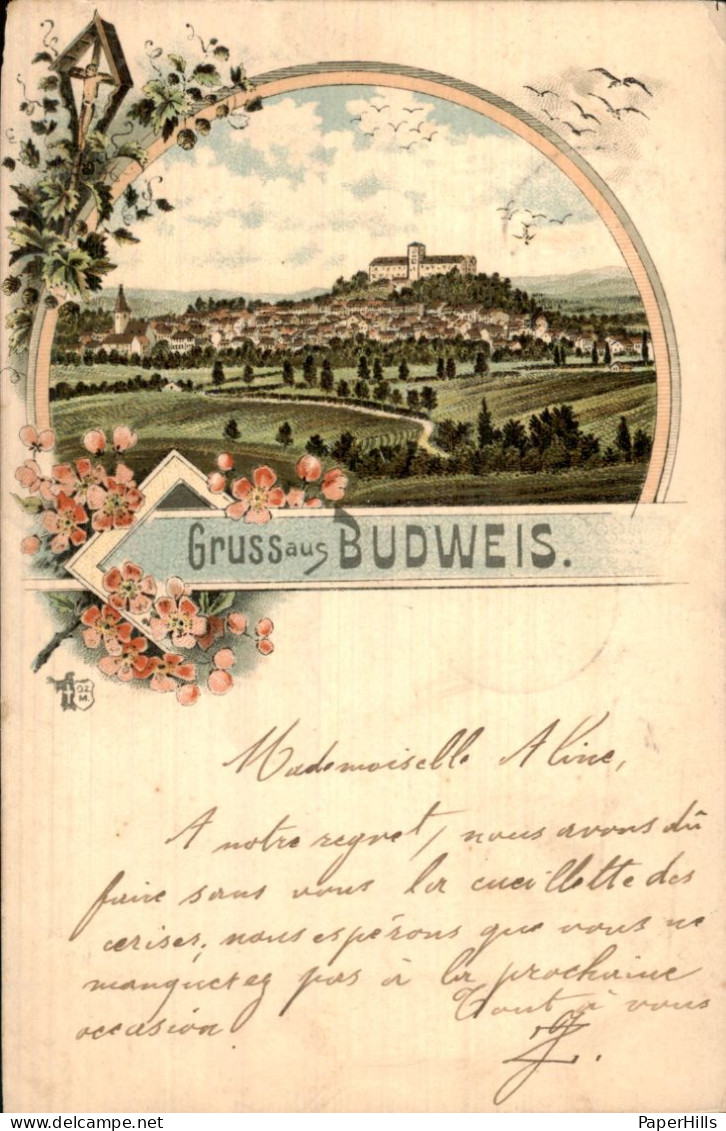 Gruss aus BUDWEIS.
Mademoiselle Aline,
A notre regret, nous avons dû
faire sans vous la cueillette des
cerises, nous espérons que vous ne
manquerez pas à la prochaine
occasion. Tout à vous
PaperHills